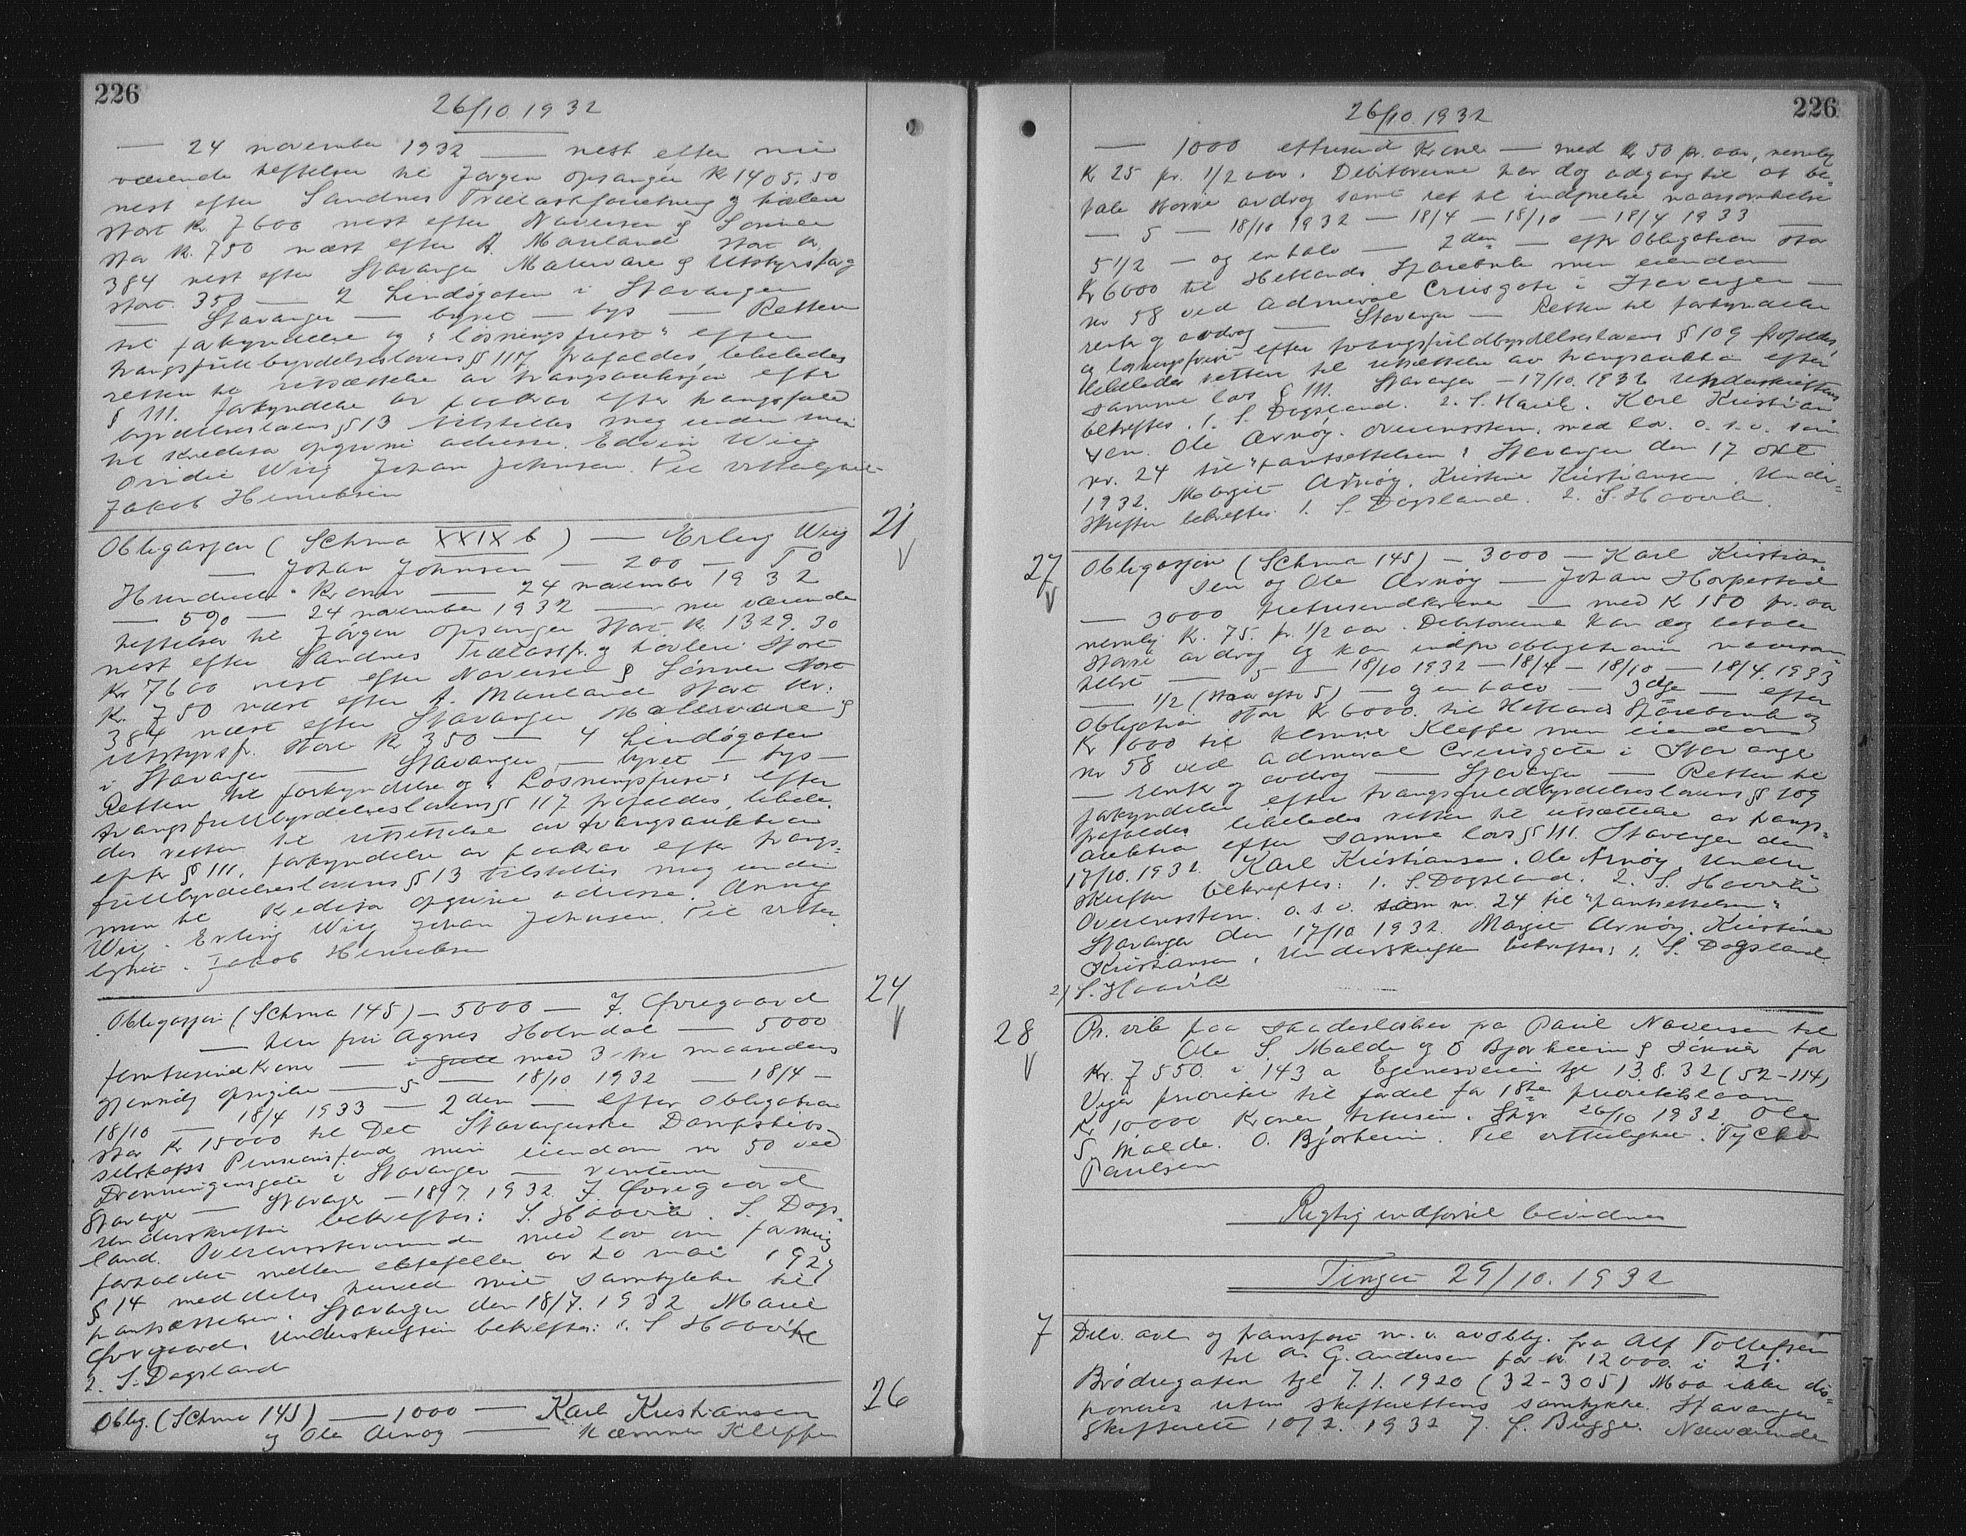 226
26/10 1932
— 24 november 1932 — nest efter nu
værende heftelser til Jørgen Opsanger kr 1405,50
nest efter Sandnes Trælastforretning & høvleri
stort kr. 7600 nest efter Naversen & Sønner
stor kr. 750 næst efter A. Maseland stort kr.
384 nest efter Stavanger Malervare & Utstyrsforg
stort. 350 — 2 Lindøgaten i Stavanger
— Stavanger — byret — bys — Retten
til forkyndelse og "løsningsfrist" efter
tvangsfullbyrdelseslovens § 117 frafaldes, likeledes
retten til utsættelse av tvangsauksjon efter
§ 111. Forkyndelse av paakrav efter tvangsfuld
byrdelseslovens § 13 tilstilles mig under min
til kreditor opgivne adresse. Edvin Wiig
Wiig Johan Johnsen. Til vitterlighet
Jakob Henriksen
Obligasjon (Schma XXIX b) — Erling Wiig
21
— Johan Johnsen — 200 — to
Hundrede Kroner — 24 november 1932
— 5% — 24 november 1932 — nu værende
heftelser til Jørgen Opsanger stort kr. 1329.30
nest efter Sandnes Trælastfr. og høvleri stort
Kr 7600 nest efter Naversen & Sønner stort
Kr. 750 næst efter A. Maseland stort kr.
384 næst efter Stavanger Malervare &
Utstyrsf. stort kr 350 — 4 Lindøgaten
i Stavanger — Stavanger — byret — bys —
Retten til forkyndelse og "Løsningsfrist" efter
tvangsfullbyrdelseslovens § 117 frafaldes, likele
des retten til utsettelse av tvangsauktion
efter § 111. Forkyndelse av paakrav efter tvangs-
fullbyrdelseslovens § 13 tilstilles mig under
min til kreditor opgivne adresse. Anny
Wiig. Erling Wiig Johan Johnsen. Til vitter
lighet. Jakob Henriksen
Obligasjon (Schma 145) — 5000 — J. Øvregaard
24
— hen fru Agnes Holmdal — 5000
femtusend Kroner — i gjæld med 3 tre maaneders
gjensidig opsigelse — 5 — 18/10 1932 — 18/4 —
18/10 — 18/4 1933 — 2den — efter Obligation
stor Kr 15000 til Det Stavangerske Dampskibs-
selskaps Pensionsfond min eiendom nr 50 ved
Dronningensgate i Stavanger — renterne —
Stavanger — Stavanger — 18/7. 1932 J. Øvregaard
Underskriften bekreftes: S. Haavik. S. Dags-
land. Overensstemmende med lov om formues
forholdet mellem ektefeller av 20 mai 1927
§ 14 meddeles herved mit samtykke til
pantsættelsen. Stavanger den 18/7. 1932 Marie
Øvregaard. Underskriften bekreftes: 1. S Haavik
2. S. Dagsland
Oblig. (Schma 145) — 1000 — Karl Kristiansen
26
og Ole Arnøy — Kæmner Kleppe
226
26/10. 1932
— 1000 ettusend Kroner — med kr 50 pr. aar, nemlig
Kr 25 pr. 1/2 aar. Debitorerne har dog adgang til at be-
tale større avdrag samt ret til indfrielse naarsomhelst
— 5 — 18/10 1932 — 18/4 — 18/10 — 18/4 1933 —
5 1/2 — og en halv — 2den — efter Obligation stor
Kr 6000 til Hetlands Sparebank min eiendom
nr 58 ved Admiral Cruisgate i Stavanger —
renter og avdrag — Stavanger — Retten til forkyndelse
og løsningsfrist efter tvangsfuldbyrdelseslovens § 109 frafaldes,
likeledes retten til utsættelse av tvangsauktion efter
samme lovs § 111. Stavanger — 17/10. 1932 Underskriften
bekreftes. 1. S. Dagsland. 2. S. Haavik. Karl Kristian
sen. Ole Arnøy. Overensstem. med lov. o. s. v. som
nr. 24 til "pantsettelsen". Stavanger den 17 okt
1932. Margit Arnøy. Kristine Kristiansen. Under-
skriften bekreftes 1. S. Dagsland. 2. S. Haavik.
27
Obligasjon (Schma 145) — 3000 — Karl Kristian-
sen og Ole Arnøy — Johan Horpestad
— 3000 tretusendkroner — med K 150 pr. aar
nemlig Kr. 75. pr. 1/2 aar. Debitorerne kan dog betale
større avdrag og kan indfri obligationen naarsom
helst — 5 — 18/10 1932 — 18/4 — 18/10 — 18/4. 1933
— 1/2 (staar efter 5) — og en halv — 3dje — efter
Obligation stor Kr 6000. til Hetlands Sparebank og
Kr 1000 til Kemner Kleppe min eiendom
nr 58 ved Admiral Cruisgate i Stavanger
— renter og avdrag — Stavanger — Retten til
forkyndelse efter tvangsfuldbyrdelseslovens § 109
frafaldes likeledes retten til utsættelse av tvangs-
auktion efter samme lovs § 111. Stavanger den
17/10. 1932 Karl Kristiansen. Ole Arnøy. Under-
skriften bekreftes: 1. S. Dagsland. 2. S. Haavik
Overensstem. o. s. v. som nr. 24 til "pantsettelsen"
Stavanger den 17/10 1932 Margit Arnøy. Kristine
Kristiansen. Underskriften bekreftes: 1. S. Dagsland
2) S. Haavik
28
Pr. vik paa skadesløsbrev fra Paul Naversen til
Ole S. Malde og O Bjorheim & Sønner for
Kr. 7550. i 143 a Egenesveien tgl 13.8.32 (52-114)
Viger prioritet til fordel for 1ste prioritetslaan
Kr 10000 Kroner titusen. Stgr 26/10 1932. Ole
S. Malde. O. Bjorheim. Til vitterlighet. Tycho
Paulsen
Rigtig indførsel bevidnes
Tinget 29/10. 1932
7
Delv. avl. og transport m. v. av oblig. fra Alf Tollefsen
til As G. Andersen for kr. 12000. i 21
Brødregaten tgl 7.1. 1920 (32-305) Maa ikke dis-
poneres uten skifterettens samtykke. Stavanger
Skifterett 10/2. 1932 J. F. Bugge. Nærværende